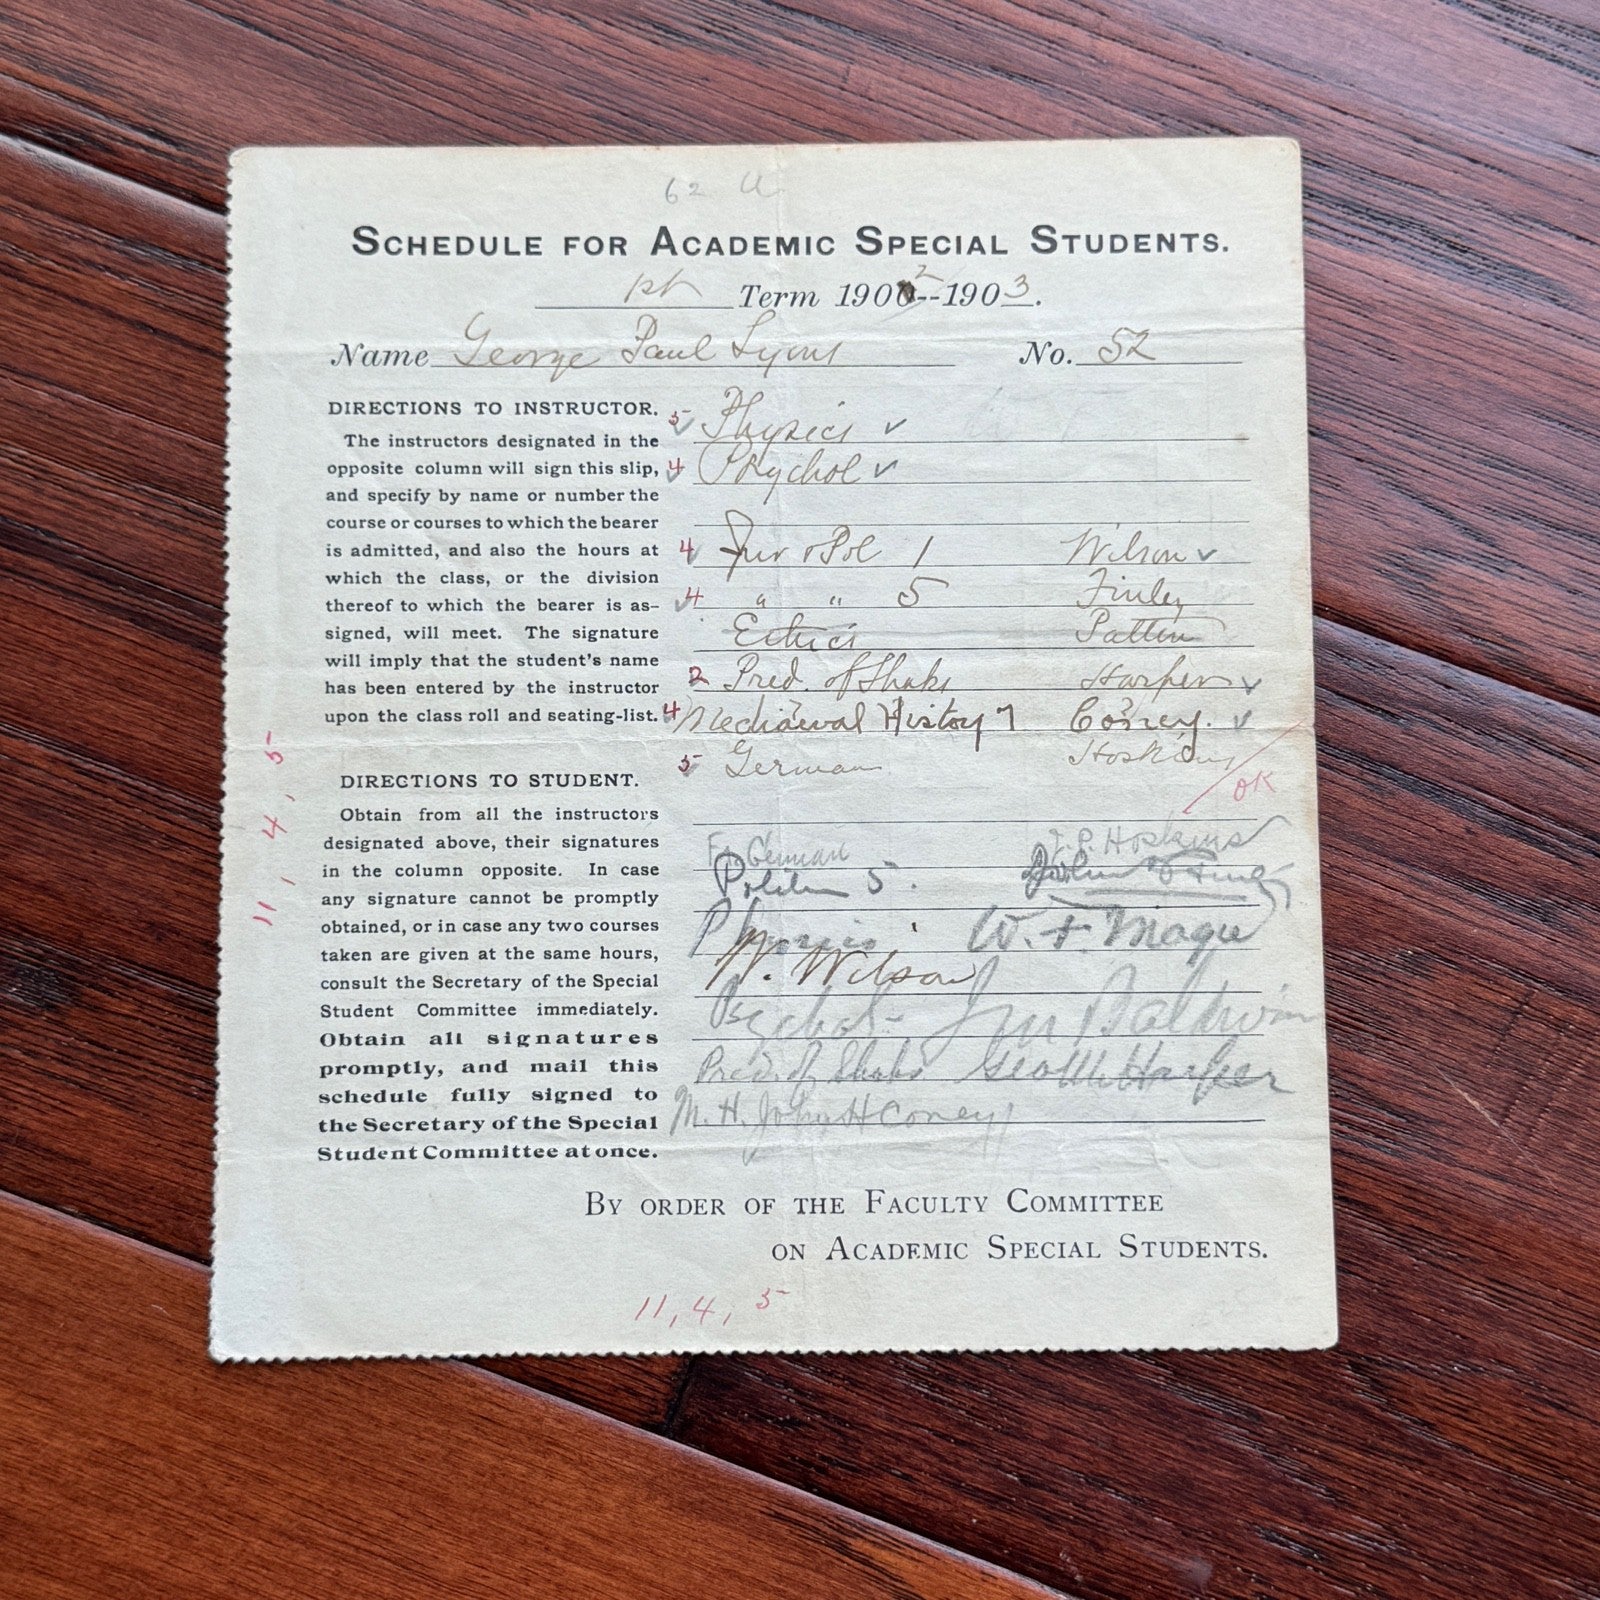 62 U
SCHEDULE FOR ACADEMIC SPECIAL STUDENTS.
1st Term 1902--1903.
Name George Paul Lyons No. 52
DIRECTIONS TO INSTRUCTOR.
The instructors designated in the
opposite column will sign this slip,
and specify by name or number the
course or courses to which the bearer
is admitted, and also the hours at
which the class, or the division
thereof to which the bearer is as-
signed, will meet. The signature
will imply that the student's name
has been entered by the instructor
upon the class roll and seating-list.
5 Physics
4 Psychol
4 Jur & Pol 1 Wilson
4 " " 5 Finley
Ethics Patton
2 Pred. of Shaks Harper
4 Mediæval History 7 Coney.
5 German Hoskins
OK
DIRECTIONS TO STUDENT.
Obtain from all the instructors
designated above, their signatures
in the column opposite. In case
any signature cannot be promptly
obtained, or in case any two courses
taken are given at the same hours,
consult the Secretary of the Special
Student Committee immediately.
Obtain all signatures
promptly, and mail this
schedule fully signed to
the Secretary of the Special
Student Committee at once.
German J. P. Hoskins
5. John Finley
Physics W. F. Magie
W. Wilson
Psychol - Baldwin
Pred. of Shaks Geo M Harper
M. H. John H Coney
11, 4, 5
BY ORDER OF THE FACULTY COMMITTEE
ON ACADEMIC SPECIAL STUDENTS.
11, 4, 5